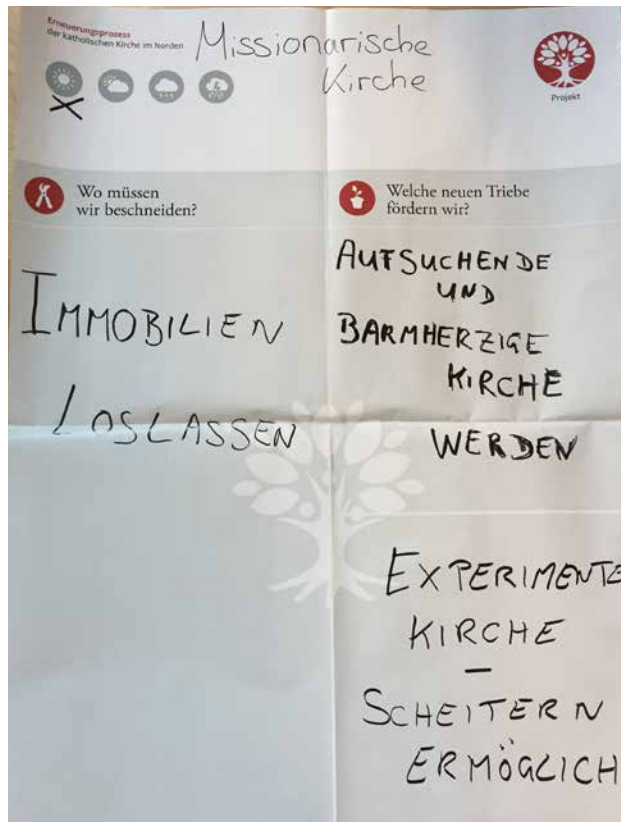 Erneuerungsprozess
der katholischen Kirche im Norden
Missionarische
Kirche
Projekt
Wo müssen
wir beschneiden?
Welche neuen Triebe
fördern wir?
IMMOBILIEN
LOSLASSEN
AUFSUCHENDE
UND
BARMHERZIGE
KIRCHE
WERDEN
EXPERIMENTE
KIRCHE
–
SCHEITERN
ERMÖGLICH